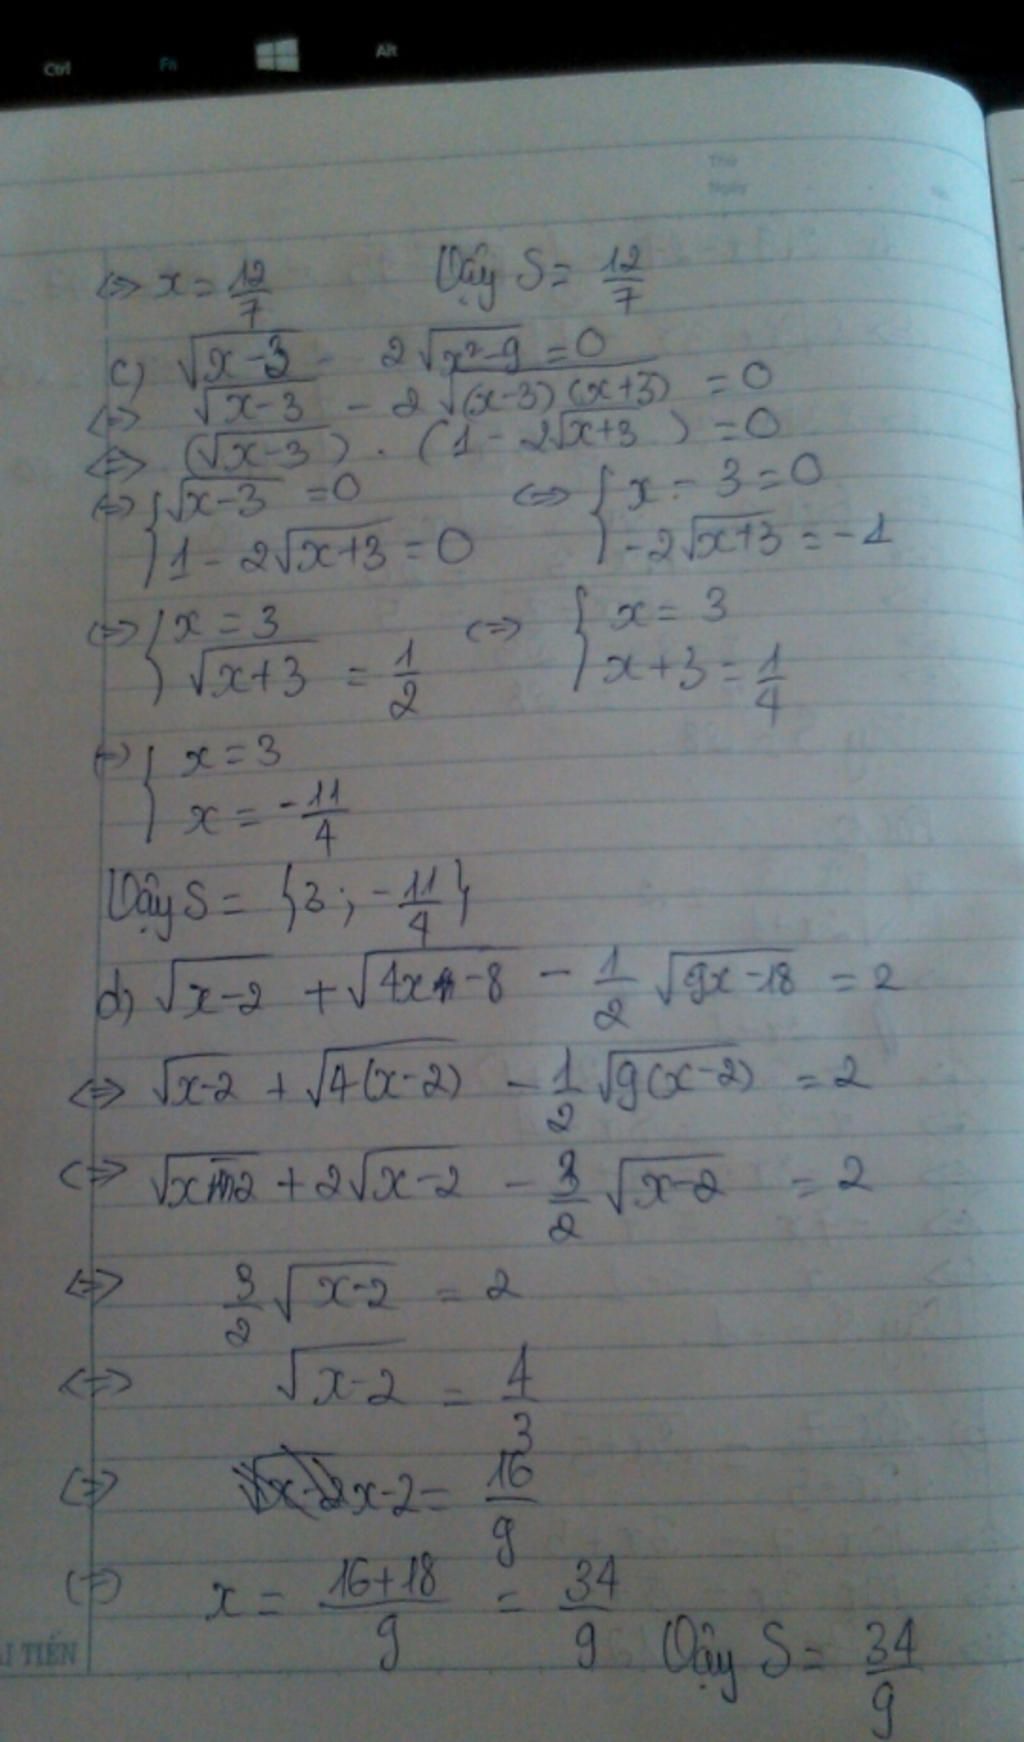 Ctrl Fn Alt
Thứ
Ngày
<=> x = 12/7 Vậy S = 12/7
c) √(x-3) - 2√(x²-9) = 0
<=> √(x-3) - 2√((x-3)(x+3)) = 0
<=> (√(x-3)) . (1 - 2√(x+3)) = 0
<=> { √(x-3) = 0 <=> { x - 3 = 0
1 - 2√(x+3) = 0 -2√(x+3) = -1
<=> { x = 3 <=> { x = 3
√(x+3) = 1/2 x + 3 = 1/4
<=> { x = 3
x = -11/4
Vậy S = {3; -11/4}
d) √(x-2) + √(4x-8) - 1/2 √(9x-18) = 2
<=> √(x-2) + √(4(x-2)) - 1/2 √(9(x-2)) = 2
<=> √(x-2) + 2√(x-2) - 3/2 √(x-2) = 2
<=> 3/2 √(x-2) = 2
<=> √(x-2) = 4/3
<=> x-2 = 16/9
<=> x = (16+18)/9 = 34/9 Vậy S = 34/9
TIẾN